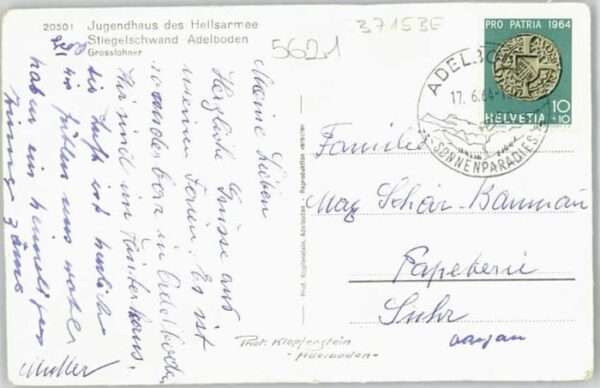 20501 Jugendhaus des Heilsarmee
Stiegelschwand Adelboden
Grosslohner
37153E
5621
PRO PATRIA 1964
10
+10
HELVETIA
ADELBODEN
17.6.64
SONNENPARADIES
Meine Lieben
Herzliche Grüsse aus
meinen Ferien. Es ist
wunderbar in Adelboden
Wir sind im Chinderhaus,
die Luft ist herrlich
wir fühlen uns
haben ein heimeliges
Zimmer
Mutter
Familie
Max Schär-Baumann
Papeterie
Suhr
Aargau
Phot. Klopfenstein, Adelboden - Reproduktion verboten
Phot. Klopfenstein
- Adelboden -